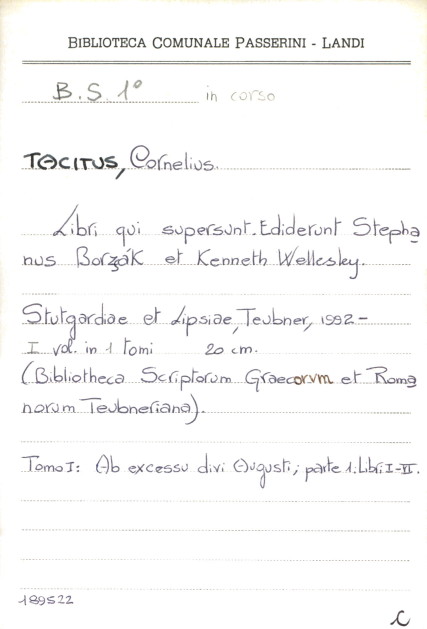 BIBLIOTECA COMUNALE PASSERINI - LANDI
B. S. 1° in corso
TACITUS, Cornelius.
Libri qui supersunt. Ediderunt Stepha
nus Borzák et Kenneth Wellesley.
Stutgardiae et Lipsiae, Teubner, 1992 -
I vol. in 1 tomi 20 cm.
(Bibliotheca Scriptorum Graecorum et Roma
norum Teubneriana).
Tomo I: Ab excessu divi Augusti; parte 1: Libri I-VI.
189522
C